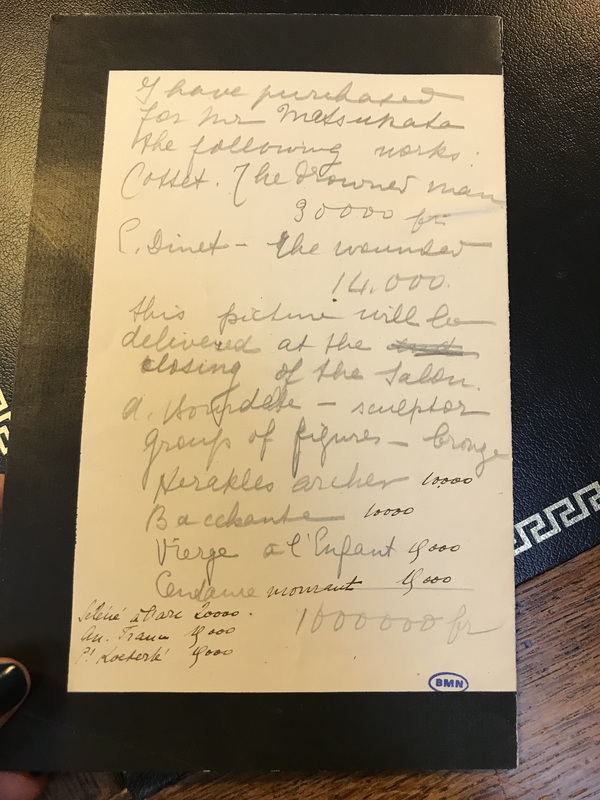 I have purchased
for Mr Matsukata
the following works:
Cottet. The drowned man
30000 fr
E. Dinet – the wounded
14.000.
this picture will be
delivered at the
closing of the Salon.
A. Bourdelle – sculptor
group of figures – bronze
Herakles archer 10000
Bacchante 10000
Vierge a l'Enfant
Centaure mourant
Séléné à l'arc 20000.
An. France
100000 fr
BMN